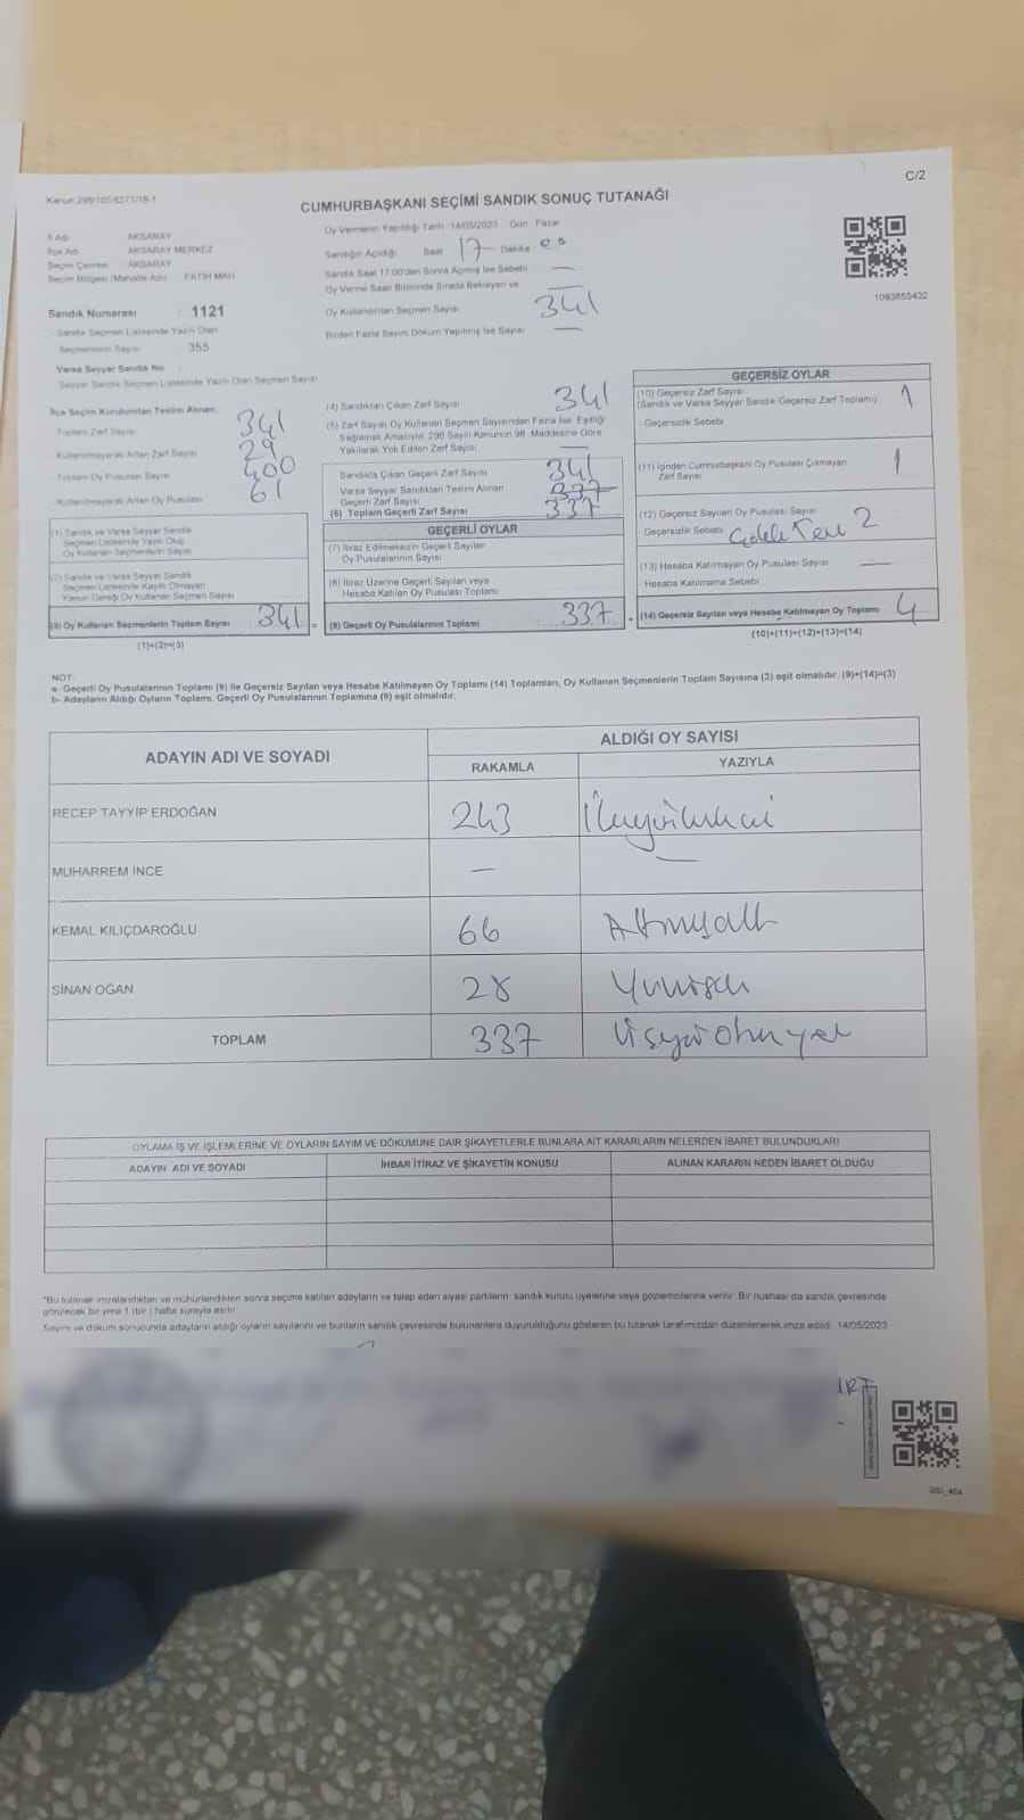 C/2
Kanun:298/105-6271/18-1
CUMHURBAŞKANI SEÇİMİ SANDIK SONUÇ TUTANAĞI
İl Adı: AKSARAY
İlçe Adı: AKSARAY MERKEZ
Seçim Çevresi: AKSARAY
Seçim Bölgesi (Mahalle Adı): FATİH MAH.
Oy Vermenin Yapıldığı Tarih: 14/05/2023 Gün: Pazar
Sandığın Açıldığı: Saat 17 Dakika 00
Sandık Saat 17:00'den Sonra Açılmış İse Sebebi —
Oy Verme Saati Bitiminde Sırada Bekleyen ve
Oy Kullandırılan Seçmen Sayısı —
341
Birden Fazla Sayım Döküm Yapılmış İse Sayısı —
1093855432
Sandık Numarası : 1121
Sandık Seçmen Listesinde Yazılı Olan
Seçmenlerin Sayısı : 355
Varsa Seyyar Sandık No :
Seyyar Sandık Seçmen Listesinde Yazılı Olan Seçmen Sayısı:
İlçe Seçim Kurulundan Teslim Alınan;
Toplam Zarf Sayısı 341
Kullanılmayarak Artan Zarf Sayısı 29
Toplam Oy Pusulası Sayısı 400
Kullanılmayarak Artan Oy Pusulası 61
(1) Sandık ve Varsa Seyyar Sandık
Seçmen Listesinde Yazılı Olup
Oy Kullanan Seçmenlerin Sayısı
(2) Sandık ve Varsa Seyyar Sandık
Seçmen Listesinde Kayıtlı Olmayan
Kanun Gereği Oy Kullanan Seçmen Sayısı
(3) Oy Kullanan Seçmenlerin Toplam Sayısı 341
(1)+(2)=(3)
(4) Sandıktan Çıkan Zarf Sayısı 341
(5) Zarf Sayısı Oy Kullanan Seçmen Sayısından Fazla İse, Eşitliği
Sağlamak Amacıyla 298 Sayılı Kanunun 98. Maddesine Göre
Yakılarak Yok Edilen Zarf Sayısı —
Sandıkta Çıkan Geçerli Zarf Sayısı 341
Varsa Seyyar Sandıktan Teslim Alınan
Geçerli Zarf Sayısı 337
(6) Toplam Geçerli Zarf Sayısı 337
GEÇERLİ OYLAR
(7) İtiraz Edilmeksizin Geçerli Sayılan
Oy Pusulalarının Sayısı
(8) İtiraz Üzerine Geçerli Sayılan veya
Hesaba Katılan Oy Pusulası Toplamı
(9) Geçerli Oy Pusulalarının Toplamı 337
GEÇERSİZ OYLAR
(10) Geçersiz Zarf Sayısı
(Sandık ve Varsa Seyyar Sandık Geçersiz Zarf Toplamı) 1
Geçersizlik Sebebi
(11) İçinden Cumhurbaşkanı Oy Pusulası Çıkmayan
Zarf Sayısı 1
(12) Geçersiz Sayılan Oy Pusulası Sayısı 2
Geçersizlik Sebebi
(13) Hesaba Katılmayan Oy Pusulası Sayısı —
Hesaba Katılmama Sebebi
(14) Geçersiz Sayılan veya Hesaba Katılmayan Oy Toplamı 4
(10)+(11)+(12)+(13)=(14)
NOT:
a- Geçerli Oy Pusulalarının Toplamı (9) ile Geçersiz Sayılan veya Hesaba Katılmayan Oy Toplamı (14) Toplamları, Oy Kullanan Seçmenlerin Toplam Sayısına (3) eşit olmalıdır. (9)+(14)=(3)
b- Adayların Aldığı Oyların Toplamı, Geçerli Oy Pusulalarının Toplamına (9) eşit olmalıdır.
ADAYIN ADI VE SOYADI
ALDIĞI OY SAYISI
RAKAMLA YAZIYLA
RECEP TAYYİP ERDOĞAN 243
MUHARREM İNCE — —
KEMAL KILIÇDAROĞLU 66 Altmışaltı
SİNAN OĞAN 28 Yirmisekiz
TOPLAM 337 Üçyüzotuzyedi
OYLAMA İŞ VE İŞLEMLERİNE VE OYLARIN SAYIM VE DÖKÜMÜNE DAİR ŞİKAYETLERLE BUNLARA AİT KARARLARIN NELERDEN İBARET BULUNDUKLARI
ADAYIN ADI VE SOYADI İHBAR İTİRAZ VE ŞİKAYETİN KONUSU ALINAN KARARIN NEDEN İBARET OLDUĞU
*Bu tutanak imzalandıktan ve mühürlendikten sonra seçime katılan adayların ve talep eden siyasi partilerin sandık kurulu üyelerine veya gözlemcilerine verilir. Bir nüshası da sandık çevresinde
görülecek bir yere 1 (bir) hafta süreyle asılır.
Sayım ve döküm sonucunda adayların aldığı oyların sayılarını ve bunların sandık çevresinde bulunanlara duyurulduğunu gösteren bu tutanak tarafımızdan düzenlenerek imza edildi. 14/05/2023